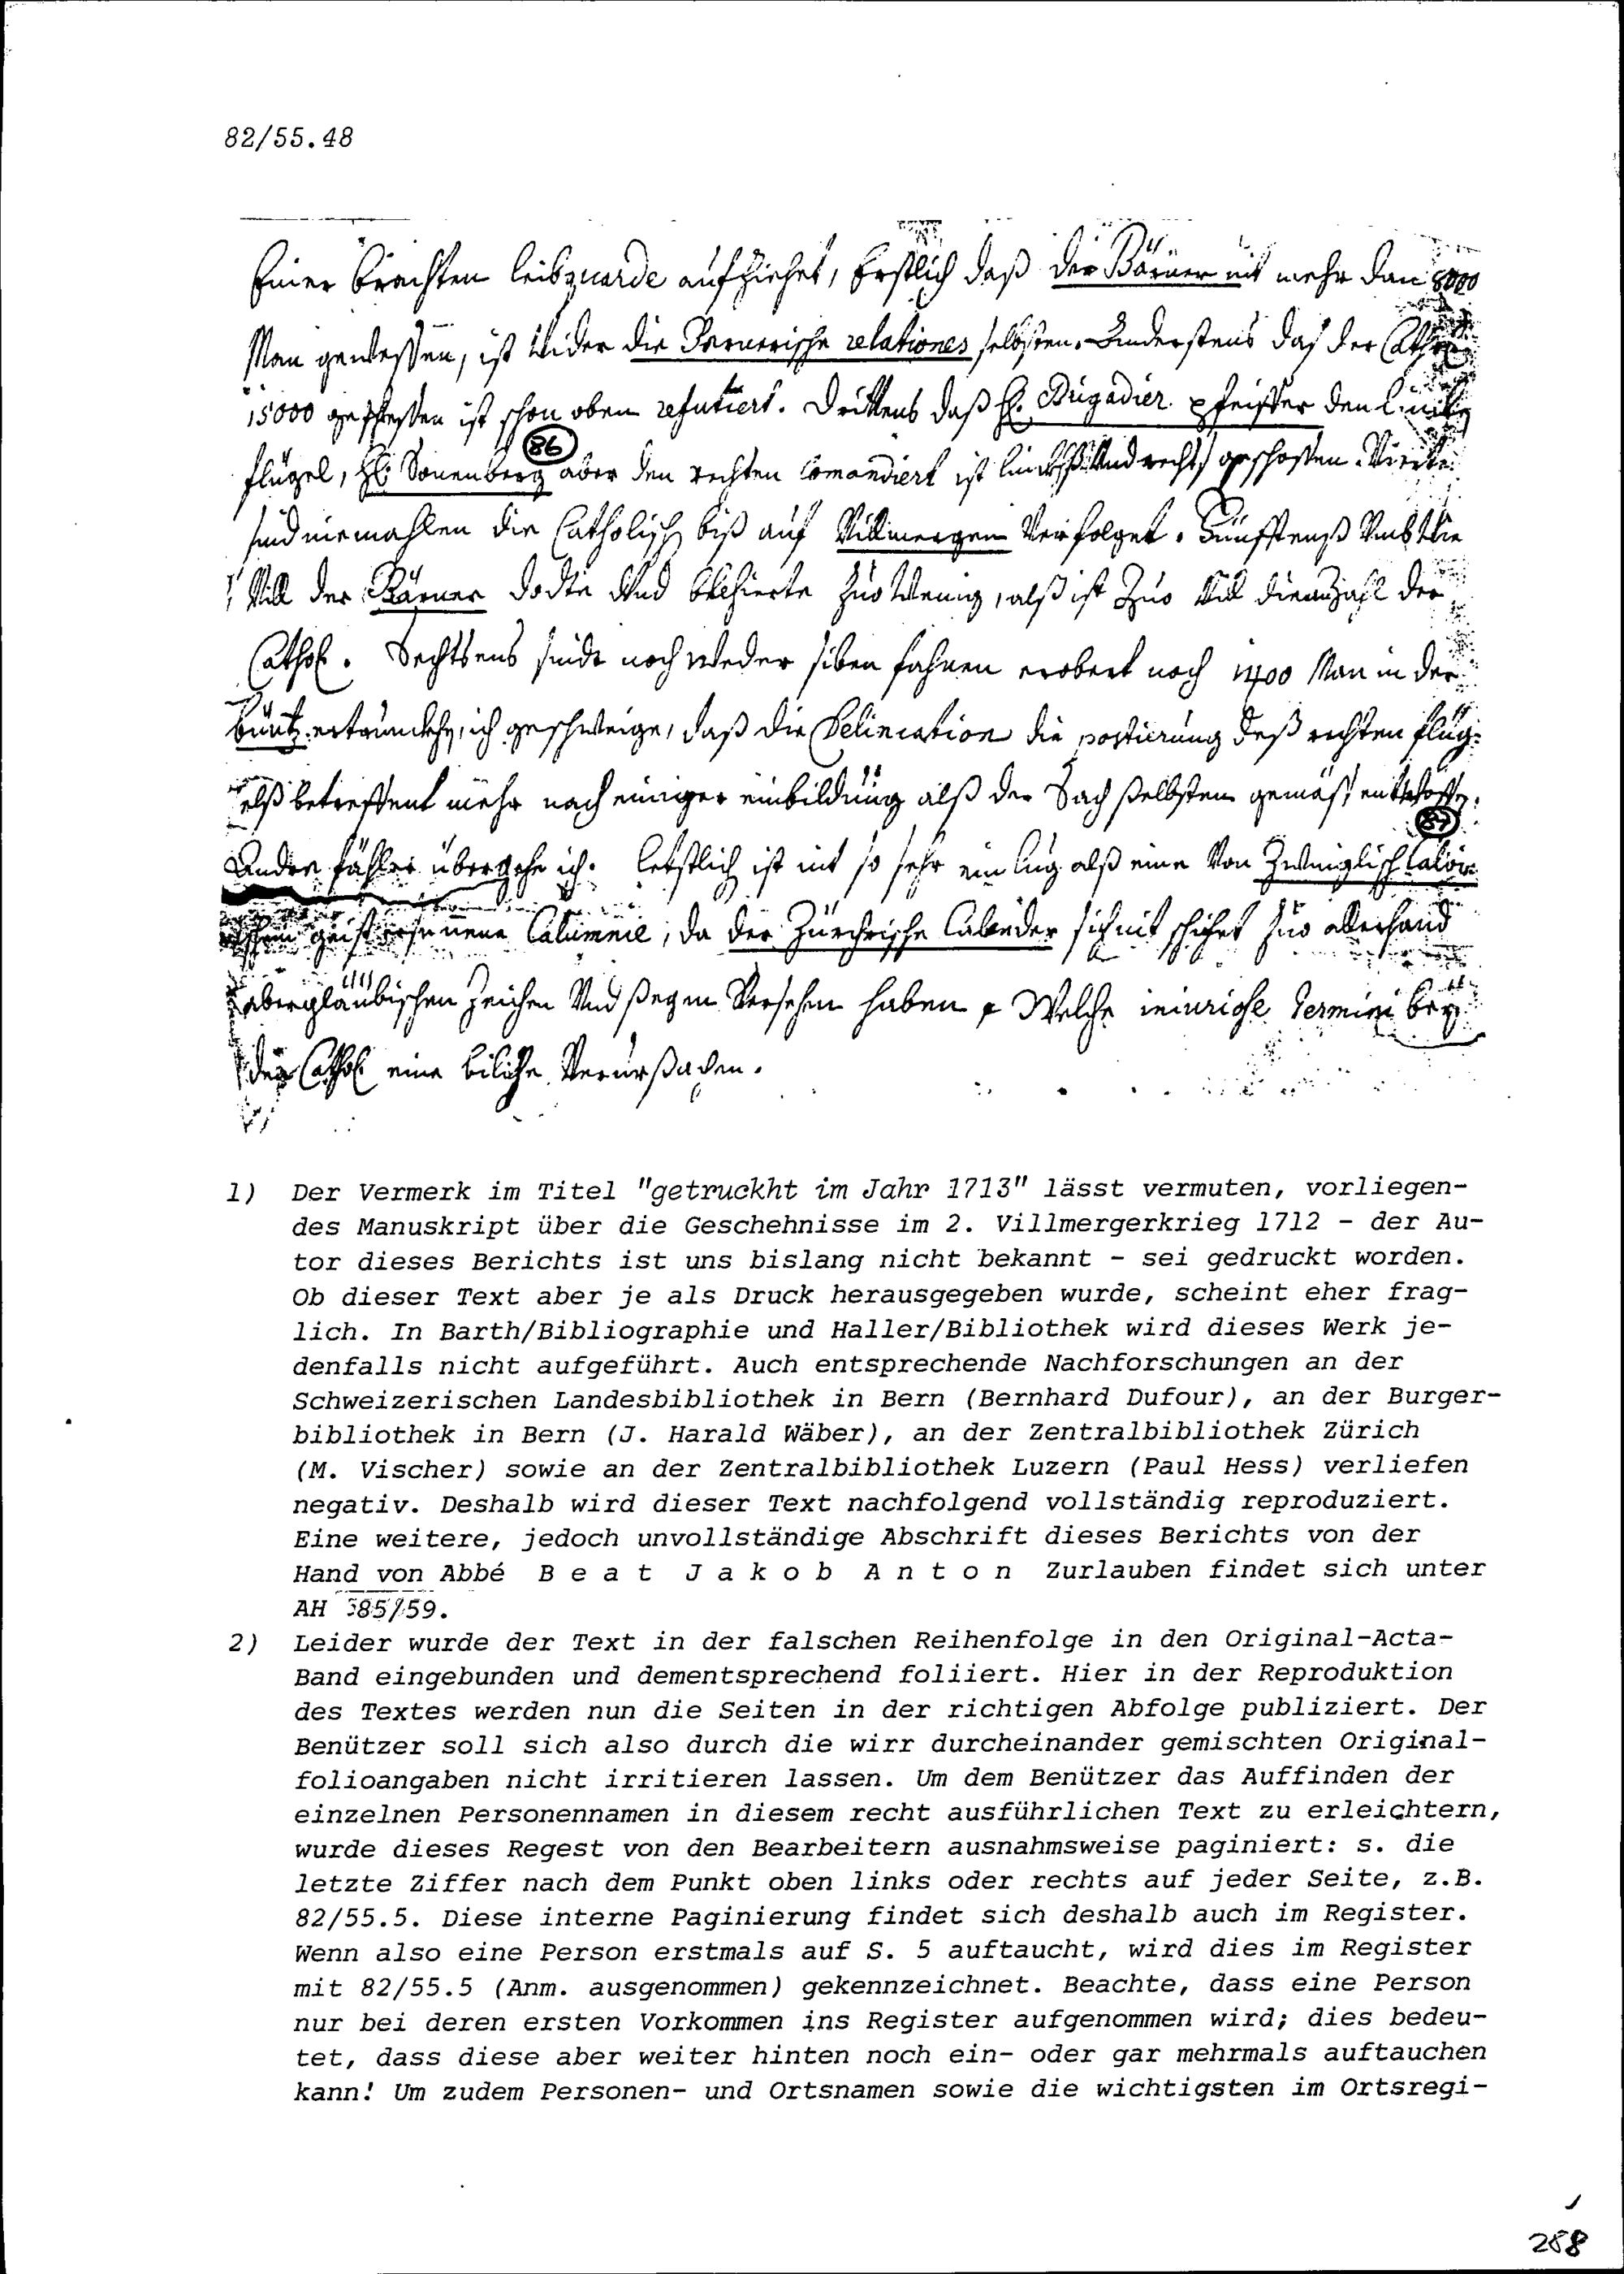 82/55.48
Einer brachten leibguarde aufziehet, Erstlich daß der Bärner nit mehr dan 8000
Man gewessen, ist wider die Bernerische relationes selbsten. Anderstens das der Cathol.
15000 gewessen ist schon oben refutiert. Drittens daß H. Brigadier pfeiffer den lincken
86
flügel, H. Sonenberg aber den rechten Comandiert ist linckhs Und rechts geschossen. Vierte
sind niemahlen die Catholisch biß auf Villmergen Verfolget. Fünfftenß
Vill der Bärner dodte Und zuo Wenig, alß ist Zuo Vill die anzahl der
Cathol. Sechstens sinde noch weder siben fahnen erobert noch 1400 Man in der
büntz ertrunckhen, ich geschweige, daß die Delineation die postierung deß rechten flüg-
elß betreffent mehr nach einiger einbildung alß der Sach selbsten gemäß, entworffen.
87
Andere fähler übergehe ich. letstlich ist nit so sehr ein lug alß eine Von Zwinglisch Calvi-
geist ersunnene Calumnie, da der Zürchrische Calender sich nit schichet Zuo allerhand
abergläubischen Zeichen Und segen Versehen haben Welche iniuriose termini bey
der Cathol. eine biliche Verursachen.
1) Der Vermerk im Titel "getruckht im Jahr 1713" lässt vermuten, vorliegen-
des Manuskript über die Geschehnisse im 2. Villmergerkrieg 1712 - der Au-
tor dieses Berichts ist uns bislang nicht bekannt - sei gedruckt worden.
Ob dieser Text aber je als Druck herausgegeben wurde, scheint eher frag-
lich. In Barth/Bibliographie und Haller/Bibliothek wird dieses Werk je-
denfalls nicht aufgeführt. Auch entsprechende Nachforschungen an der
Schweizerischen Landesbibliothek in Bern (Bernhard Dufour), an der Burger-
bibliothek in Bern (J. Harald Wäber), an der Zentralbibliothek Zürich
(M. Vischer) sowie an der Zentralbibliothek Luzern (Paul Hess) verliefen
negativ. Deshalb wird dieser Text nachfolgend vollständig reproduziert.
Eine weitere, jedoch unvollständige Abschrift dieses Berichts von der
Hand von Abbé B e a t J a k o b A n t o n Zurlauben findet sich unter
AH 385/59.
2) Leider wurde der Text in der falschen Reihenfolge in den Original-Acta-
Band eingebunden und dementsprechend foliiert. Hier in der Reproduktion
des Textes werden nun die Seiten in der richtigen Abfolge publiziert. Der
Benützer soll sich also durch die wirr durcheinander gemischten Original-
folioangaben nicht irritieren lassen. Um dem Benützer das Auffinden der
einzelnen Personennamen in diesem recht ausführlichen Text zu erleichtern,
wurde dieses Regest von den Bearbeitern ausnahmsweise paginiert: s. die
letzte Ziffer nach dem Punkt oben links oder rechts auf jeder Seite, z.B.
82/55.5. Diese interne Paginierung findet sich deshalb auch im Register.
Wenn also eine Person erstmals auf S. 5 auftaucht, wird dies im Register
mit 82/55.5 (Anm. ausgenommen) gekennzeichnet. Beachte, dass eine Person
nur bei deren ersten Vorkommen ins Register aufgenommen wird; dies bedeu-
tet, dass diese aber weiter hinten noch ein- oder gar mehrmals auftauchen
kann! Um zudem Personen- und Ortsnamen sowie die wichtigsten im Ortsregi-
288